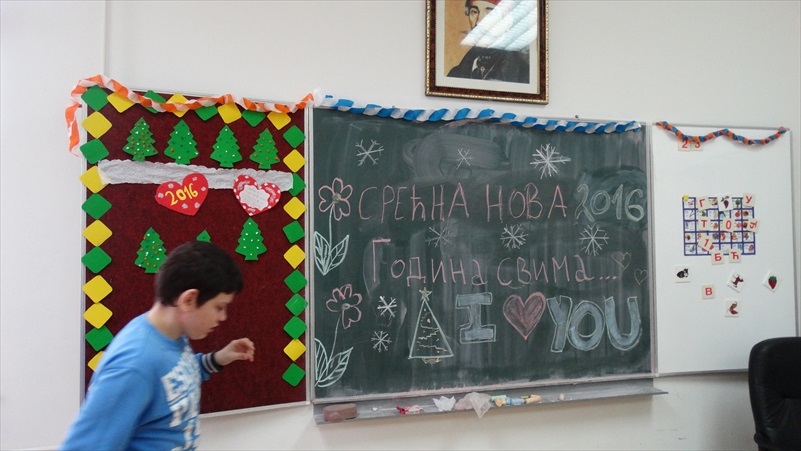 2016
СРЕЋНА НОВА 2016
Година свима...
I YOU
2-3
Г У
Т О
Б Ћ
В